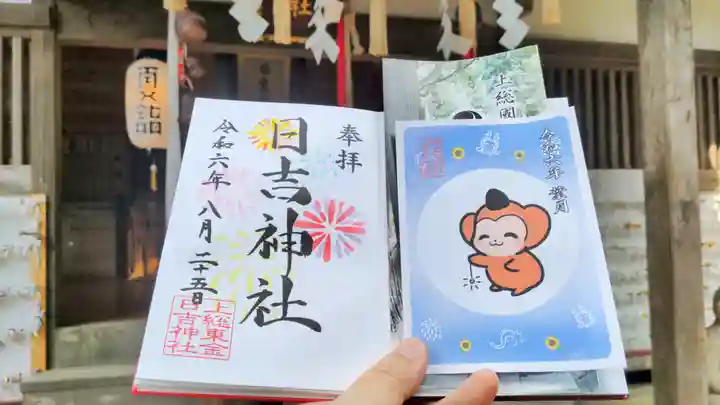 奉拝
日吉神社
令和六年 八月 二十五日
上総東金
日吉神社
上総国
令和六年 葉月
社